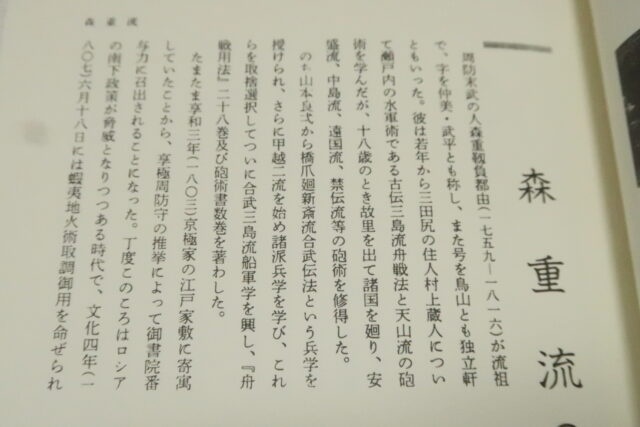 森重流
森重流
周防末武の人森重靱負都由(一七五九—一八一六)が流祖
で、字を仲美・武平とも称し、また号を鳥山とも独立軒
ともいった。彼は若年から三田尻の住人村上蔵人につい
て瀬戸内の水軍術である古伝三島流舟戦法と天山流の砲
術を学んだが、十八歳のとき故里を出て諸国を廻り、安
盛流、中島流、遠国流、禁伝流等の砲術を修得した。
のち山本良弌から橋爪廻新斎流合武伝法という兵学を
授けられ、さらに甲越二流を始め諸派兵学を学び、これ
らを取捨選択してついに合武三島流船軍学を興し、『舟
戦用法』二十八巻及び砲術書数巻を著わした。
たまたま享和三年(一八〇三)京極家の江戸家敷に寄寓
していたことから、享極周防守の推挙によって御書院番
与力に召出されることになった。丁度このころはロシア
の南下政策が脅威となりつつある時代で、文化四年(一
八〇七)六月十八日には蝦夷地火術取調御用を命ぜられ